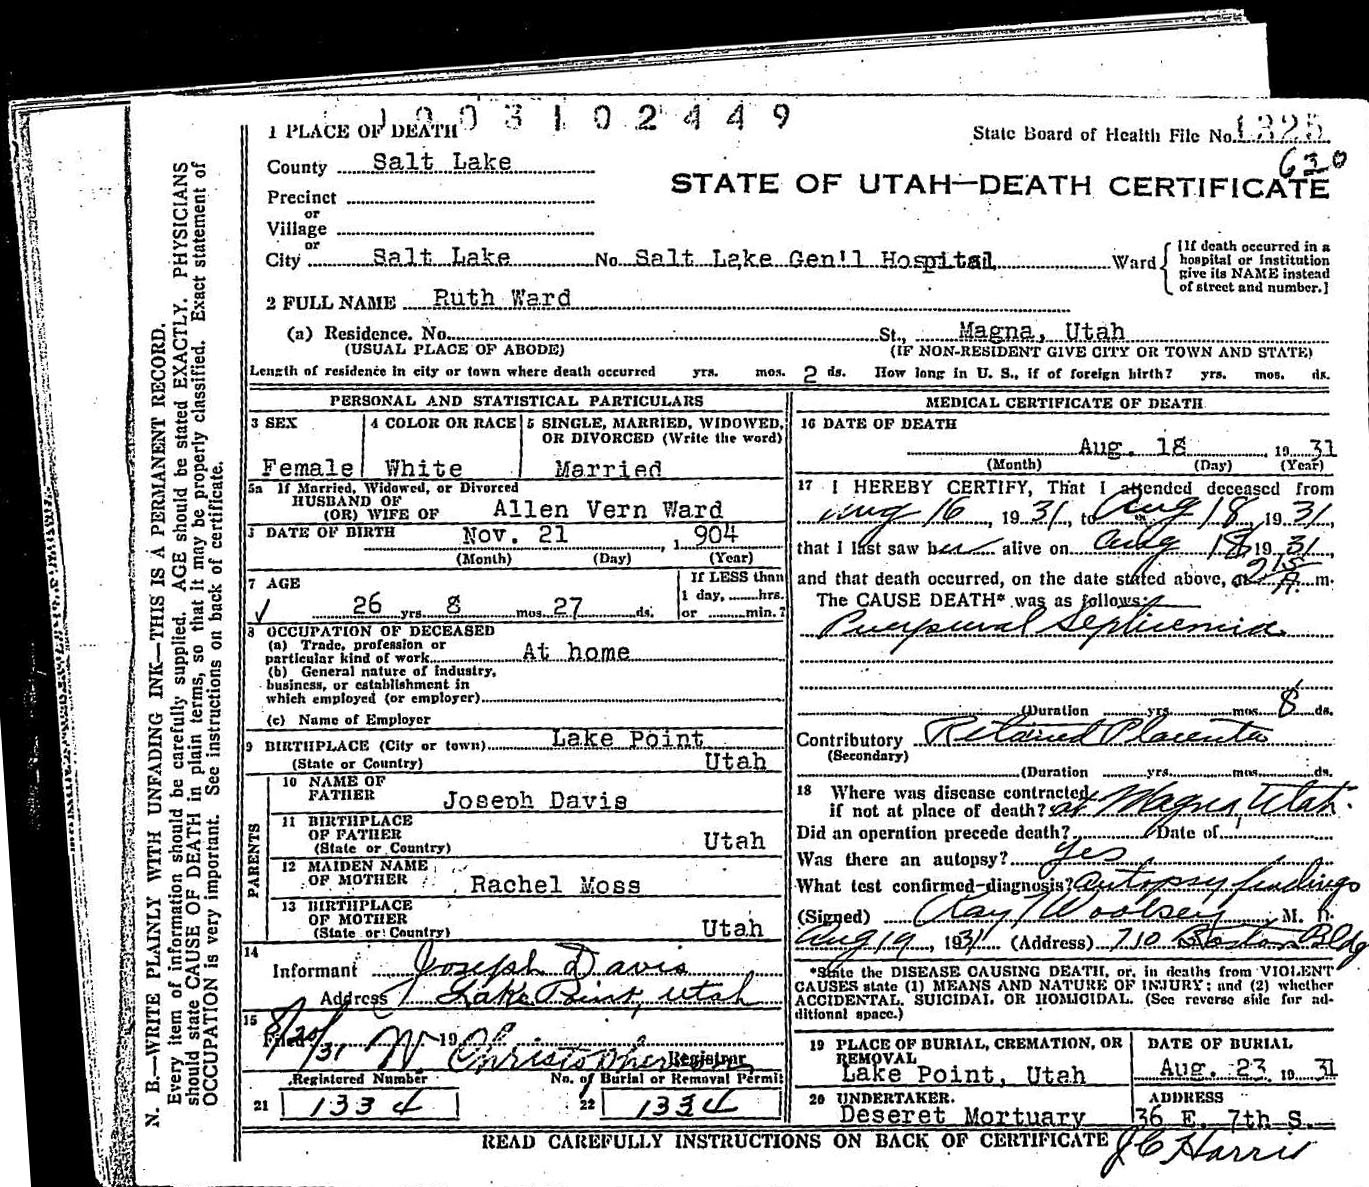 1003102449
1 PLACE OF DEATH
State Board of Health File No. 1325
630
County Salt Lake
STATE OF UTAH—DEATH CERTIFICATE
Precinct
or
Village
or
City Salt Lake No. Salt Lake Gen'l Hospital Ward
[If death occurred in a
hospital or institution
give its NAME instead
of street and number.]
2 FULL NAME Ruth Ward
(a) Residence. No. St., Magna, Utah
(USUAL PLACE OF ABODE) (IF NON-RESIDENT GIVE CITY OR TOWN AND STATE)
Length of residence in city or town where death occurred yrs. mos. 2 ds. How long in U. S., if of foreign birth? yrs. mos. ds.
PERSONAL AND STATISTICAL PARTICULARS
3 SEX 4 COLOR OR RACE 5 SINGLE, MARRIED, WIDOWED,
OR DIVORCED (Write the word)
Female White Married
5a If Married, Widowed, or Divorced
HUSBAND OF
(OR) WIFE OF Allen Vern Ward
DATE OF BIRTH Nov. 21, 1904
(Month) (Day) (Year)
7 AGE
If LESS than
1 day, hrs.
or min.?
26 yrs. 8 mos. 27 ds.
8 OCCUPATION OF DECEASED
(a) Trade, profession or
particular kind of work At home
(b) General nature of industry,
business, or establishment in
which employed (or employer)
(c) Name of Employer
9 BIRTHPLACE (City or town) Lake Point
(State or Country) Utah
PARENTS
10 NAME OF
FATHER Joseph Davis
11 BIRTHPLACE
OF FATHER
(State or Country) Utah
12 MAIDEN NAME
OF MOTHER Rachel Moss
13 BIRTHPLACE
OF MOTHER
(State or Country) Utah
14
Informant Joseph Davis
Address Lake Point, Utah
15
Filed 8/20/31 19 W Christopherson
Registrar
Registered Number No. of Burial or Removal Permit
21 1334 22 1334
MEDICAL CERTIFICATE OF DEATH
16 DATE OF DEATH
Aug. 18, 1931
(Month) (Day) (Year)
17 I HEREBY CERTIFY, That I attended deceased from
Aug 16, 1931, to Aug 18, 1931,
that I last saw her alive on Aug 18 1931,
and that death occurred, on the date stated above, at 215 A. m.
The CAUSE DEATH* was as follows:
Puerpural Septicemia
(Duration yrs. mos. 8 ds.
Contributory Retained Placenta
(Secondary)
(Duration yrs. mos. ds.
18 Where was disease contracted
if not at place of death? at Magna, Utah.
Did an operation precede death? Date of
Was there an autopsy? yes
What test confirmed diagnosis? Autopsy findings
(Signed) Ray T Woolsey M. D.
Aug 19, 1931 (Address) 710 Boston Bldg
*State the DISEASE CAUSING DEATH, or, in deaths from VIOLENT
CAUSES state (1) MEANS AND NATURE OF INJURY: and (2) whether
ACCIDENTAL, SUICIDAL OR HOMICIDAL. (See reverse side for ad-
ditional space.)
19 PLACE OF BURIAL, CREMATION, OR
REMOVAL
Lake Point, Utah
DATE OF BURIAL
Aug. 23, 1931
20 UNDERTAKER.
Deseret Mortuary
ADDRESS
36 E. 7th S.
READ CAREFULLY INSTRUCTIONS ON BACK OF CERTIFICATE
J C Harris
N. B.—WRITE PLAINLY WITH UNFADING INK—THIS IS A PERMANENT RECORD.
Every item of information should be carefully supplied. AGE should be stated EXACTLY. PHYSICIANS
should state CAUSE OF DEATH in plain terms, so that it may be properly classified. Exact statement of
OCCUPATION is very important. See instructions on back of certificate.